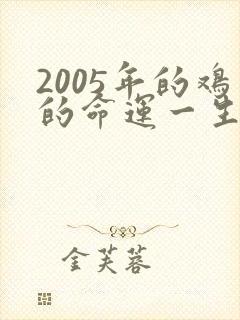 2005年的鸡
的命运一生
金芙蓉